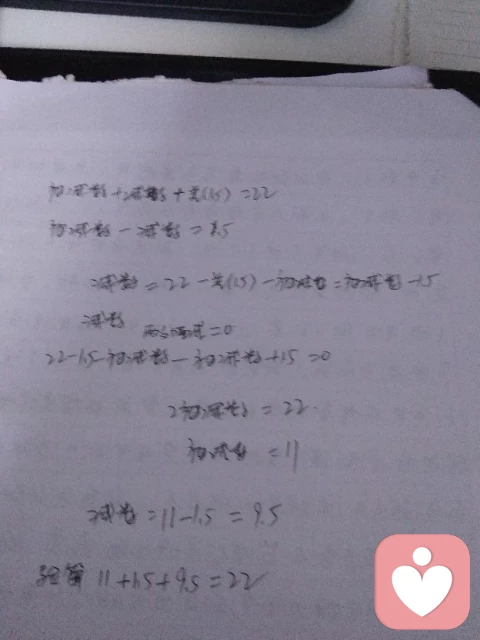 被减数+减数+差(1.5)=22
被减数-减数=1.5
减数=22-差(1.5)-被减数=被减数-1.5
减数 =0
22-1.5-被减数-被减数+1.5=0
2被减数=22
被减数=11
减数=11-1.5=9.5
验算 11+1.5+9.5=22